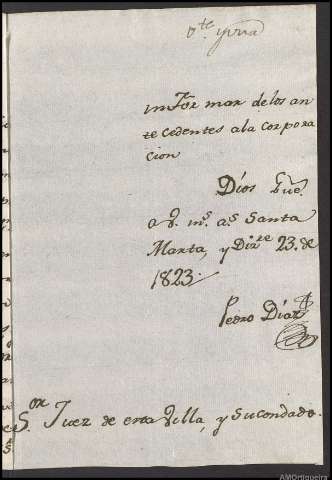 informar de los an
tecedentes a la corpora
cion
Dios gue.
a V. ms. as. Santa
Marta, y Dizre. 23. de
1823.
Pedro Diaz
Sor. Juez de esta Villa, y su condado.
AMOrtigueira